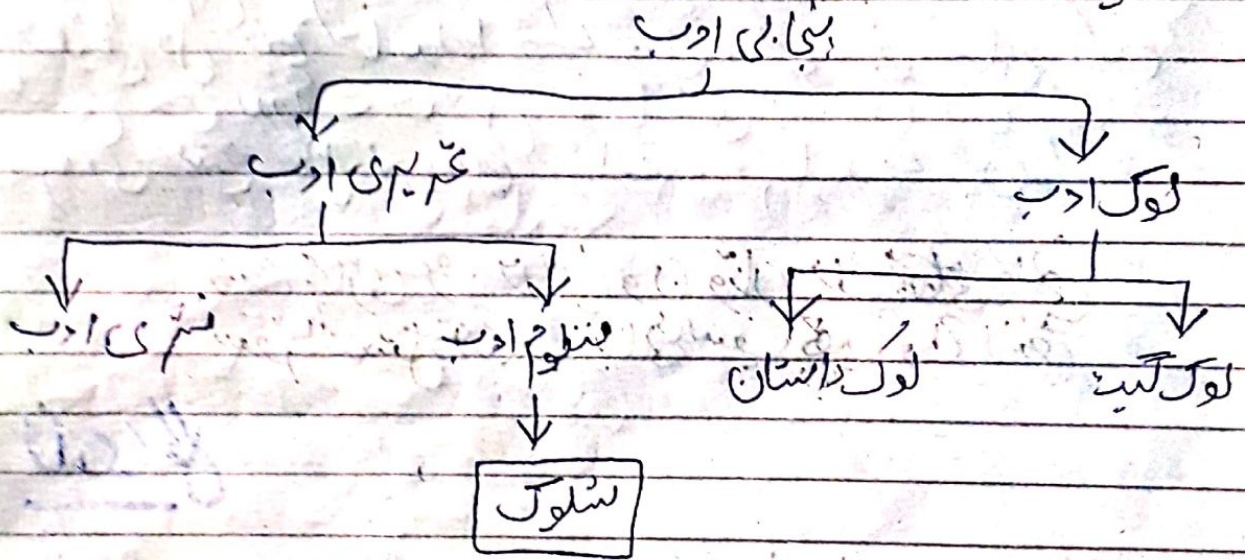 پنجابی ادب
لوک ادب تحریری ادب
لوک گیت لوک داستان منظوم ادب نثری ادب
شلوک